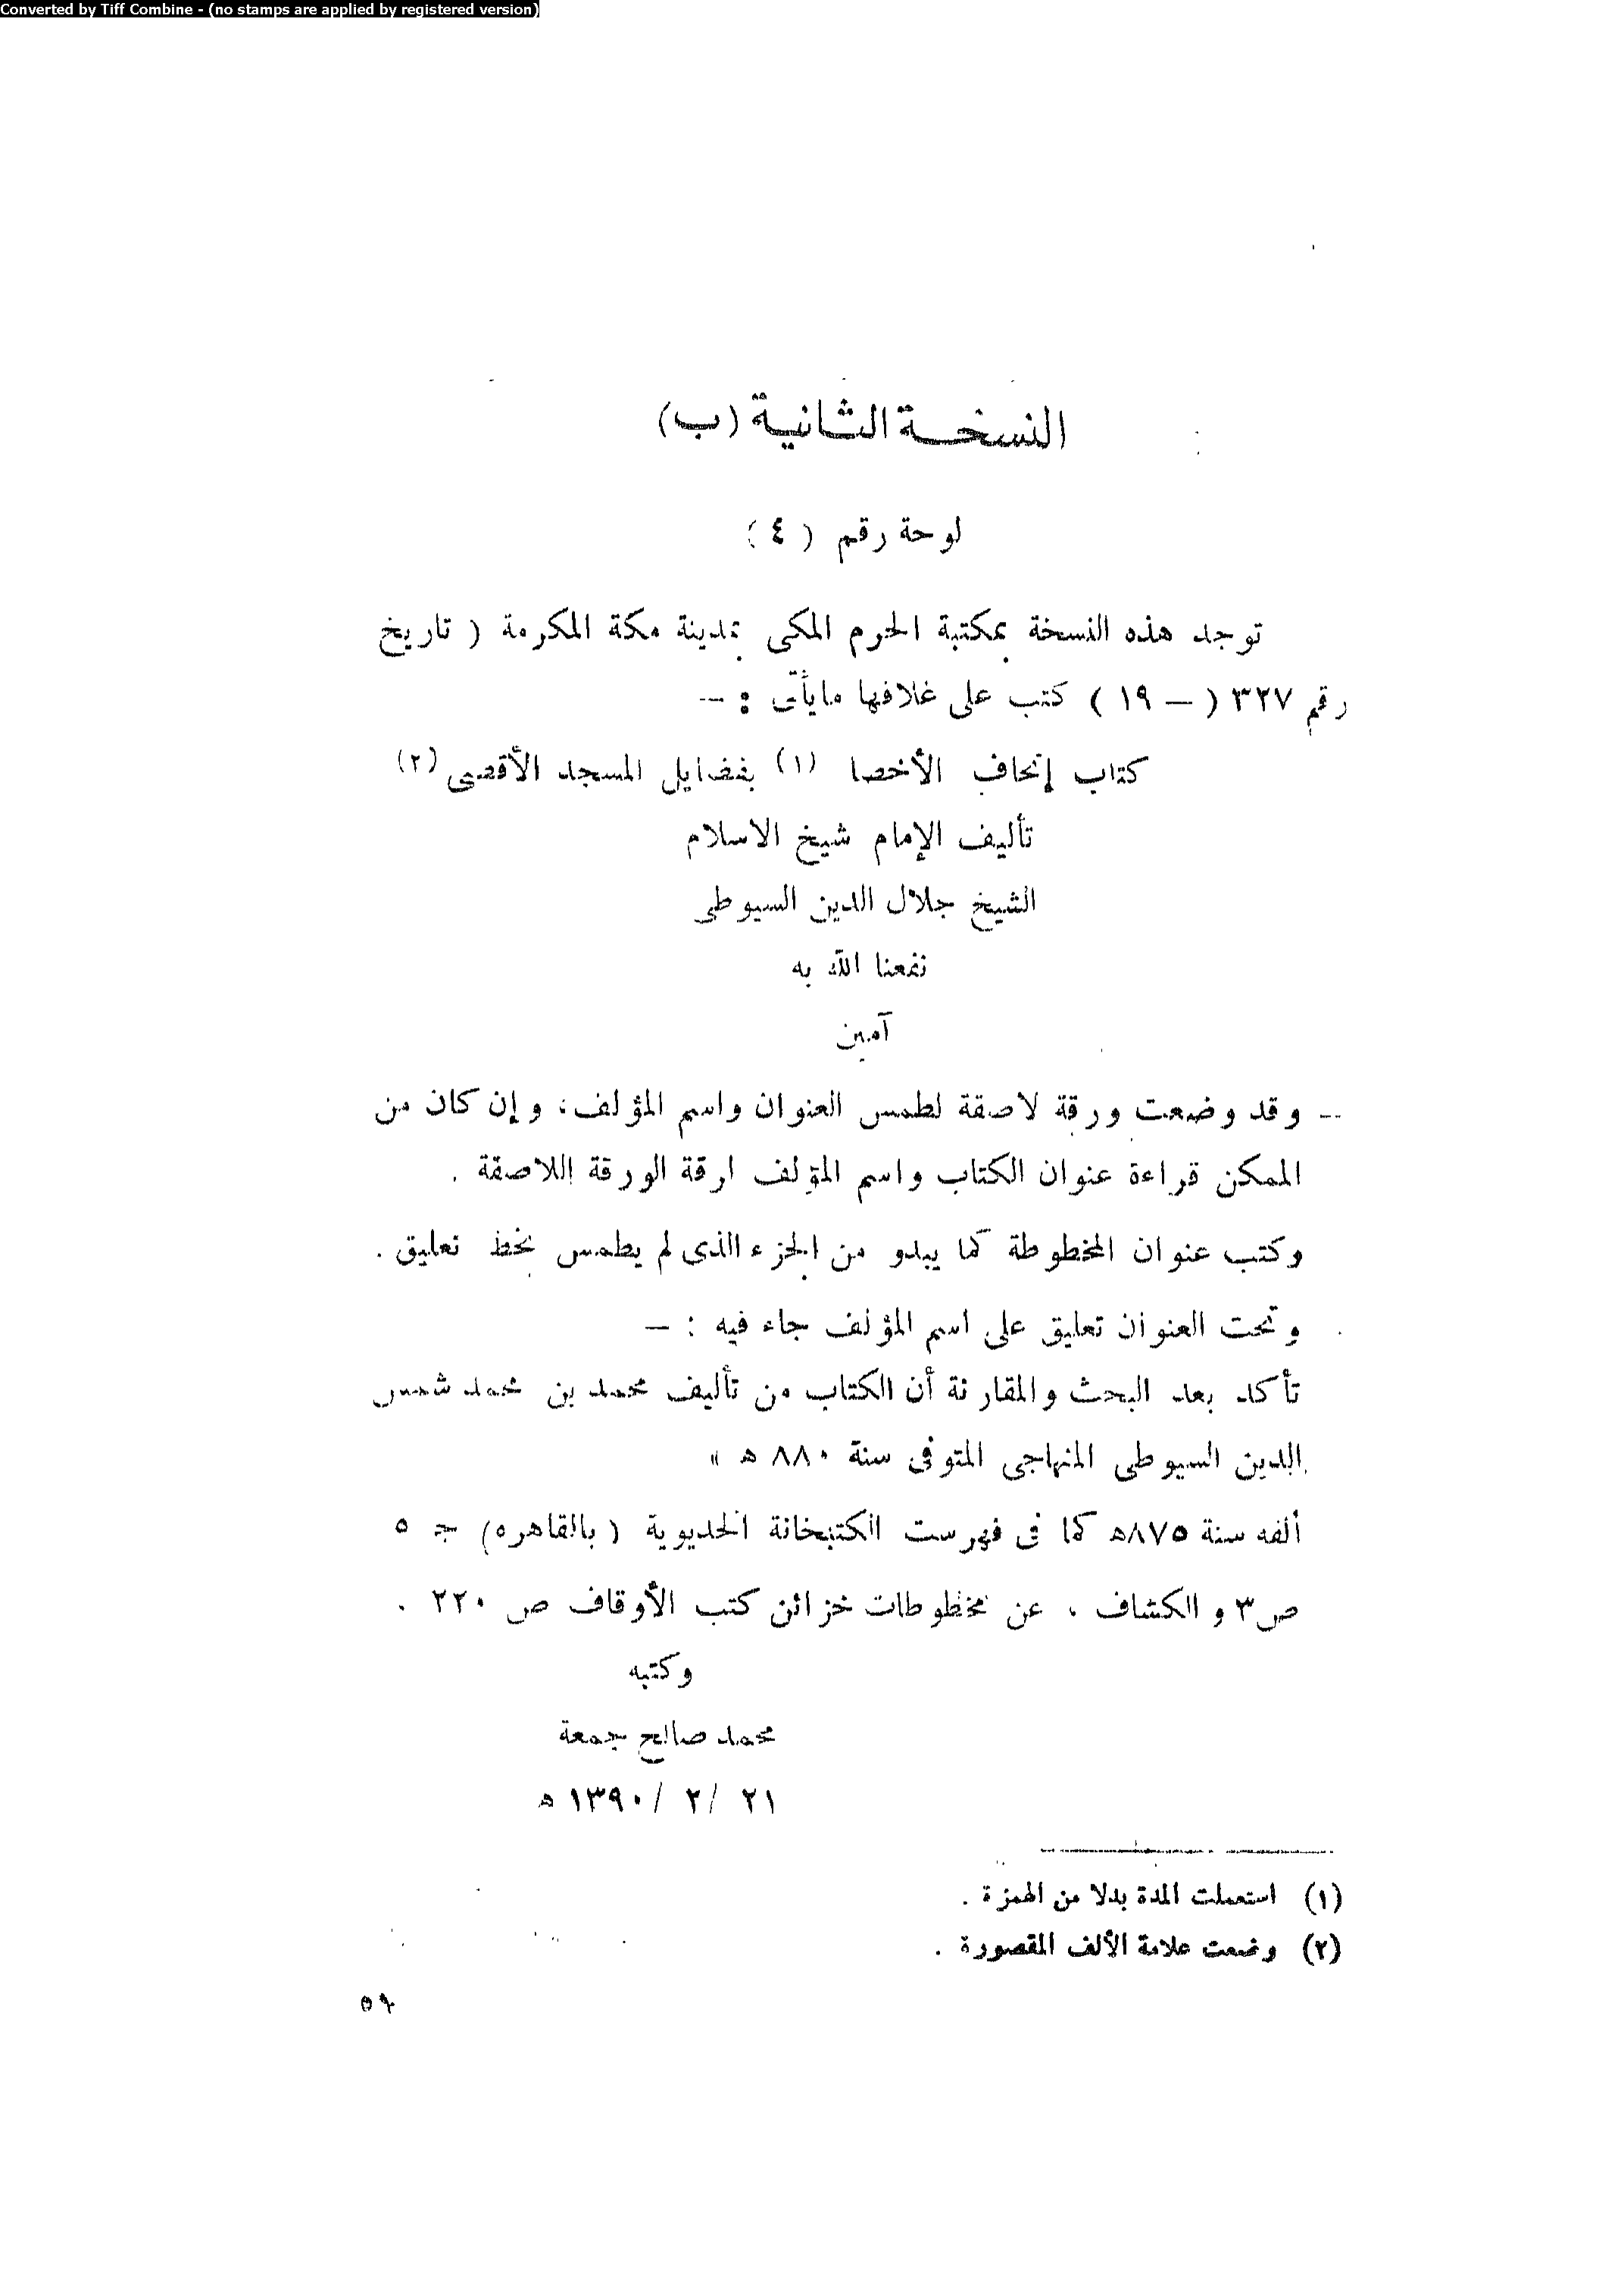 Converted by Tiff Combine - (no stamps are applied by registered version)
النسخة الثانية (ب)
لوحة رقم ( ٤ )
توجد هذه النسخة بمكتبة الحرم المكى بمدينة مكة المكرمة ( تاريخ
رقم ٣٢٧ ( – ١٩ ) كتب على غلافها مايأتى : –
كتاب إتحاف الأخصا (١) بفضايل المسجد الأقصى (٢)
تأليف الإمام شيخ الاسلام
الشيخ جلال الدين السيوطى
نفعنا الله به
آمين
– وقد وضعت ورقة لاصقة لطمس العنوان واسم المؤلف، وإن كان من
الممكن قراءة عنوان الكتاب واسم المؤلف لرقة الورقة اللاصقة .
وكتب عنوان المخطوطة كما يبدو من الجزء الذى لم يطمس بخط تعليق .
وتحت العنوان تعليق على اسم المؤلف جاء فيه : –
تأكد بعد البحث والمقارنة أن الكتاب من تأليف محمد بن محمد شمس
الدين السيوطى المنهاجى المتوفى سنة ٨٨٠ ه »
ألفه سنة ٨٧٥ه كما فى فهرست الكتبخانة الخديوية ( بالقاهره) ج ٥
ص٣ و الكشاف ، عن مخطوطات خزائن كتب الأوقاف ص ٢٢٠ .
وكتبه
محمد صالح جمعة
٢١ / ٢ / ١٣٩٠ ه
(١) استعملت المدة بدلا من الهمزة .
(٢) وضعت علامة الألف المقصورة .
٥٩